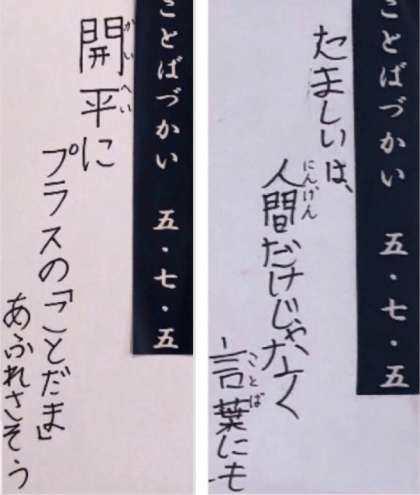 ことばづかい 五・七・五
たましいは、
にんげん
人間だけじゃなく
ことば
言葉にも
ことばづかい 五・七・五
かいへい
開平に
プラスの「ことだま」
あふれさそう